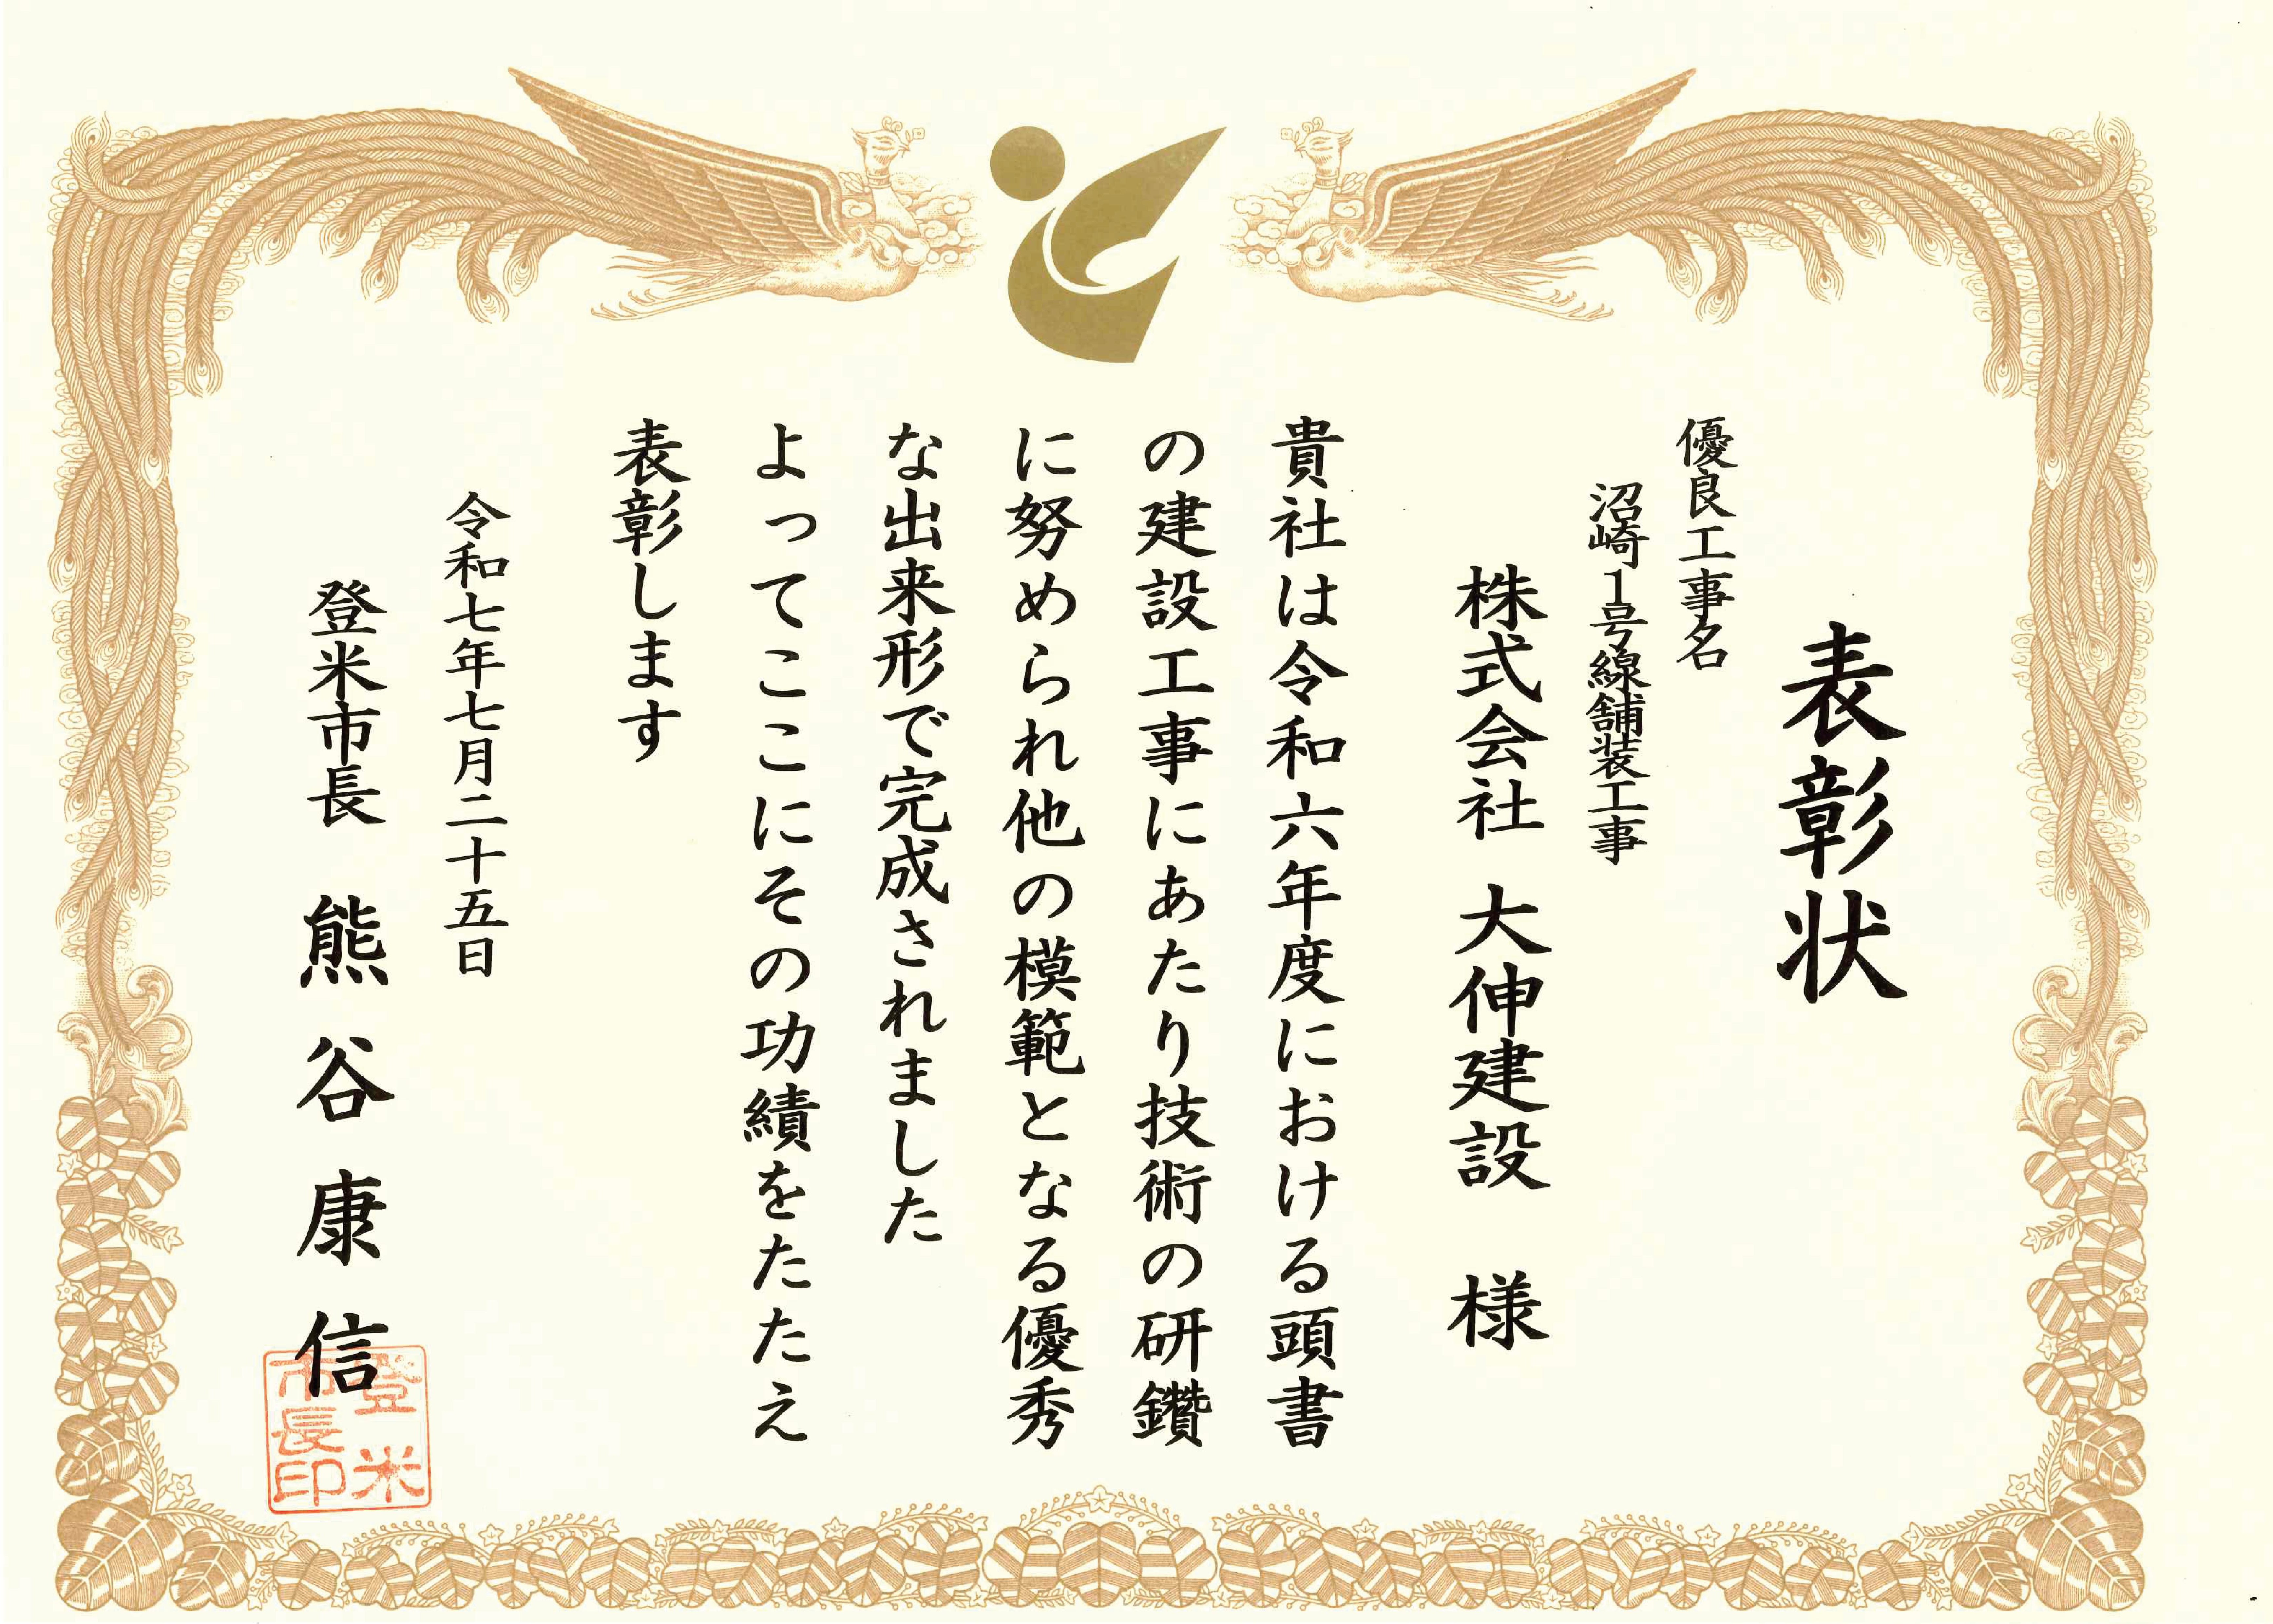 表彰状
優良工事名
沼崎1号線舗装工事
株式会社 大伸建設 様
貴社は令和六年度における頭書
の建設工事にあたり技術の研鑽
に努められ他の模範となる優秀
な出来形で完成されました
よってここにその功績をたたえ
表彰します
令和七年七月二十五日
登米市長 熊谷康信
登米
市長印